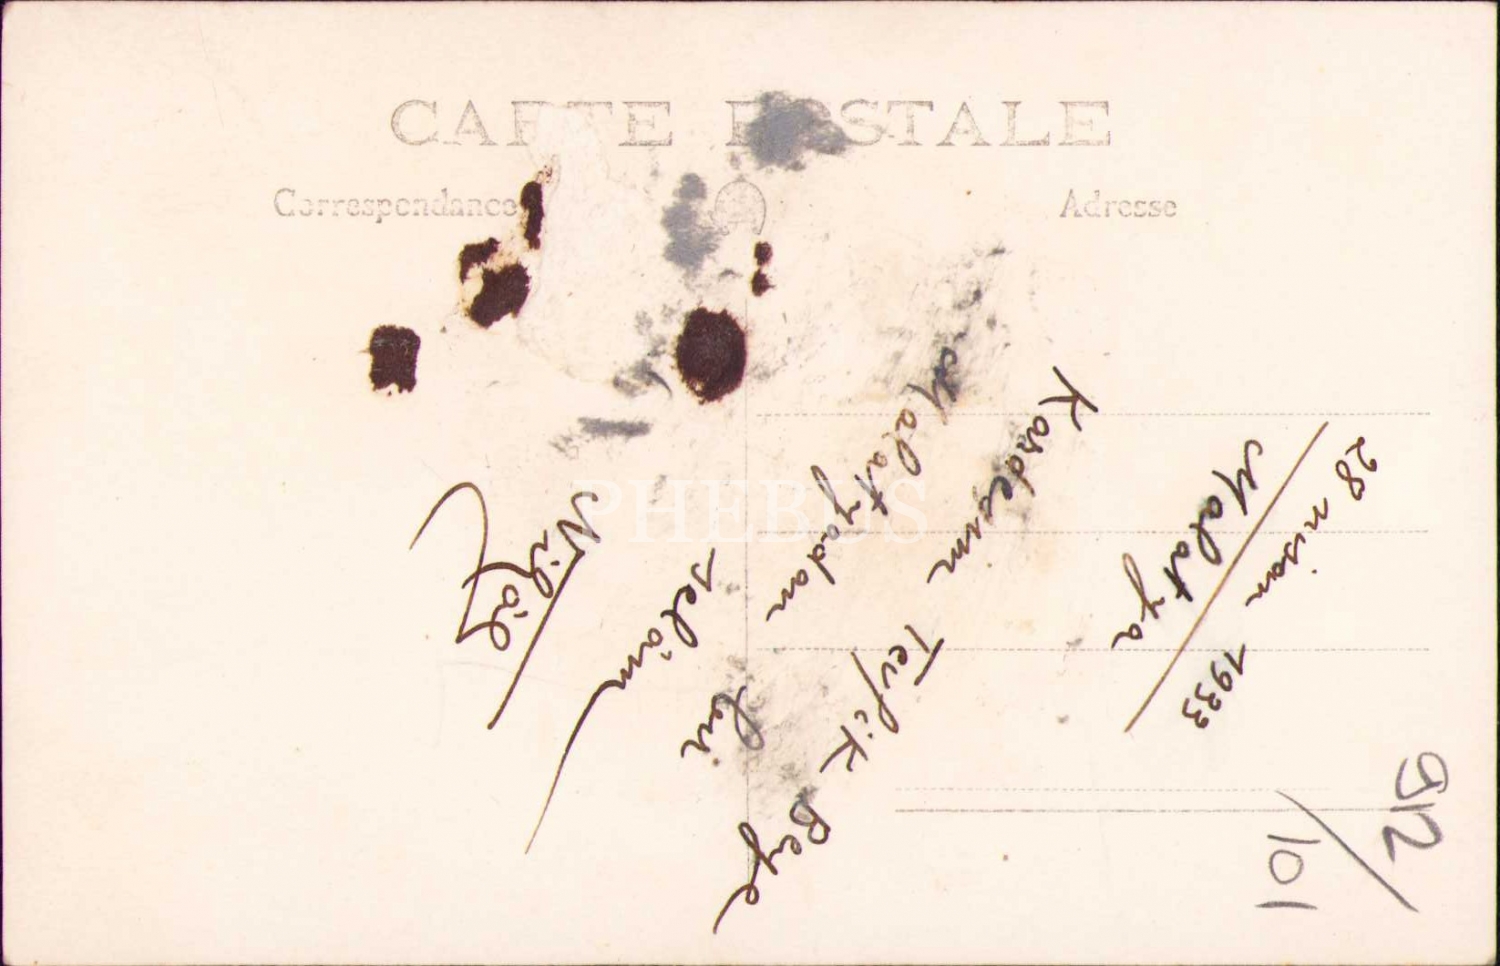 CARTE POSTALE
Correspondance
Adresse
28 nisan 1933
Malatya
Kardeşim Tevfik Beye
Malatyadan
selâm
Nihâl
PHEBUS
912/101